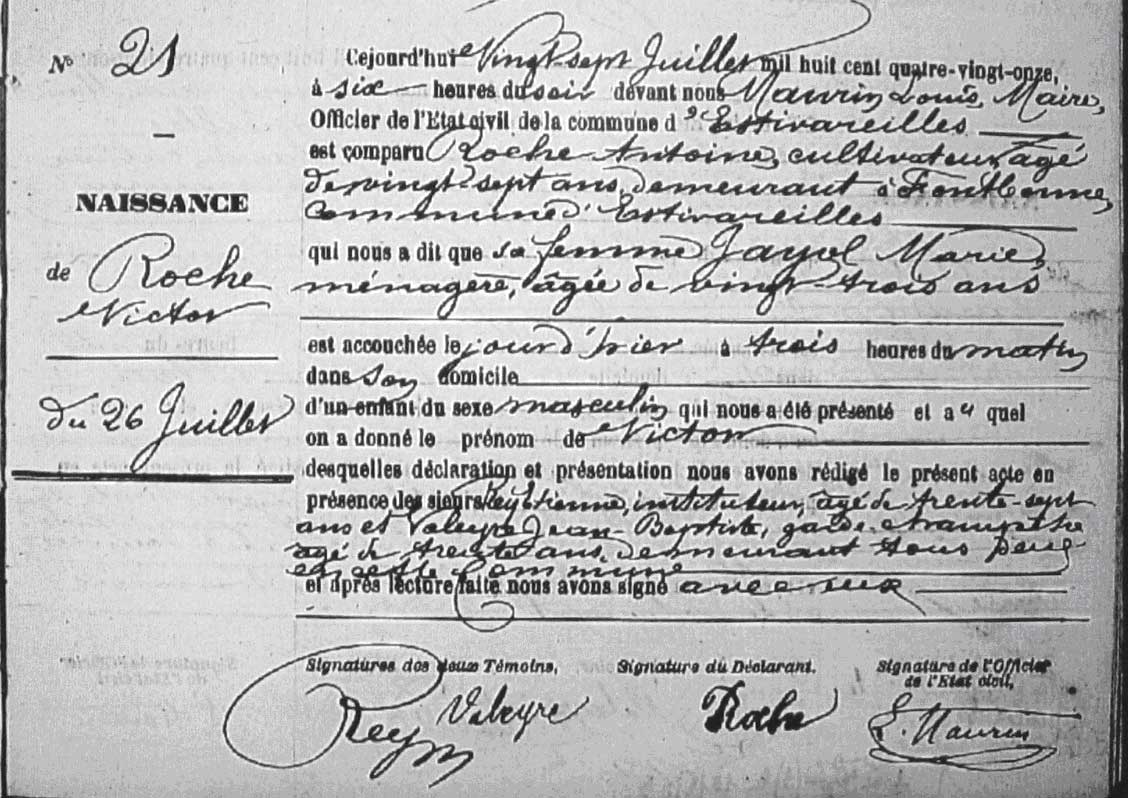 N° 21
NAISSANCE
de Roche
Victor
du 26 Juillet
Cejourd'hui Vingt-sept Juillet mil huit cent quatre-vingt-onze,
à six heures du soir devant nous Maurin Louis, Maire,
Officier de l'Etat civil de la commune d'Estivareilles
est comparu Roche Antoine, cultivateur, âgé
de vingt-sept ans, demeurant à Fontbonne,
Commune d'Estivareilles
qui nous a dit que sa femme Marie,
ménagère, âgée de vingt-trois ans
est accouchée le jour d'hier à trois heures du matin
dans son domicile
d'un enfant du sexe masculin qui nous a été présenté et au quel
on a donné le prénom de Victor
desquelles déclaration et présentation nous avons rédigé le présent acte en
présence des sieurs Rey Etienne, instituteur, âgé de trente-sept
ans et Valeyre Jean-Baptiste, garde-champêtre
âgé de trente ans, demeurant tous deux
en cette Commune
et après lecture faite nous avons signé avec eux
Signatures des deux Témoins, Signature du Déclarant. Signature de l'Officier
de l'Etat civil,
Rey Valeyre Roche L. Maurin